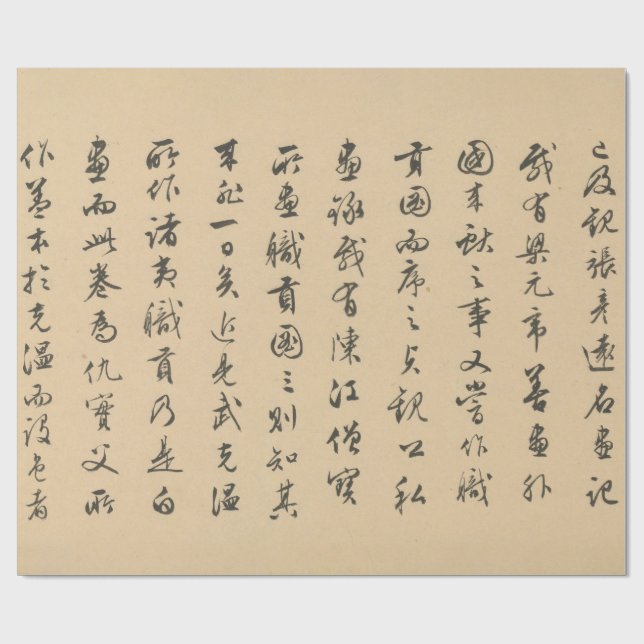 及觀張彥遠名畫記
載有梁元帝善畫外
國來獻之事又嘗作職
貢圖而序之貞觀公私
畫錄載有陳江僧寶
所畫職貢圖三則知其
來非一日矣近見武克溫
所作諸夷職貢乃是白
畫而此卷為仇實父所
作蓋本於克溫而設色者